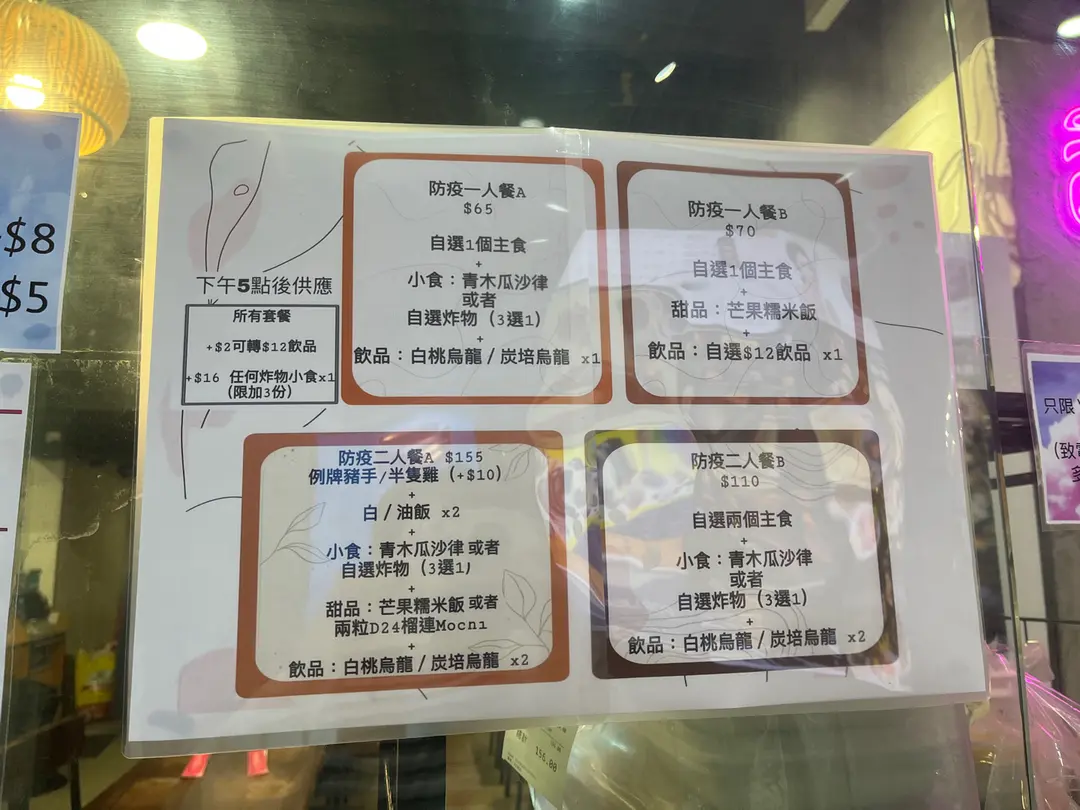 $8
$5
下午5點後供應
所有套餐
+$2可轉$12飲品
+$16 任何炸物小食x1
(限加3份)
防疫一人餐A
$65
自選1個主食
+
小食：青木瓜沙律
或者
自選炸物 (3選1)
+
飲品：白桃烏龍/炭培烏龍 x1
防疫一人餐B
$70
自選1個主食
+
甜品：芒果糯米飯
+
飲品：自選$12飲品 x1
防疫二人餐A $155
例牌豬手/半隻雞 (+$10)
+
白/油飯 x2
+
小食：青木瓜沙律或者
自選炸物 (3選1)
+
甜品：芒果糯米飯或者
兩粒D24榴連Mochi
+
飲品：白桃烏龍/炭培烏龍 x2
防疫二人餐B
$110
自選兩個主食
+
小食：青木瓜沙律
或者
自選炸物 (3選1)
+
飲品：白桃烏龍/炭培烏龍 x2
只限
(致電
多
156.00